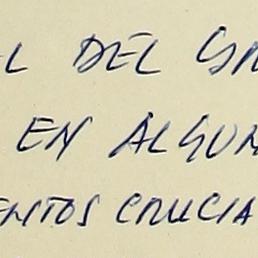 L DEL GA
EN ALGUN
ENTOS CRUCIA